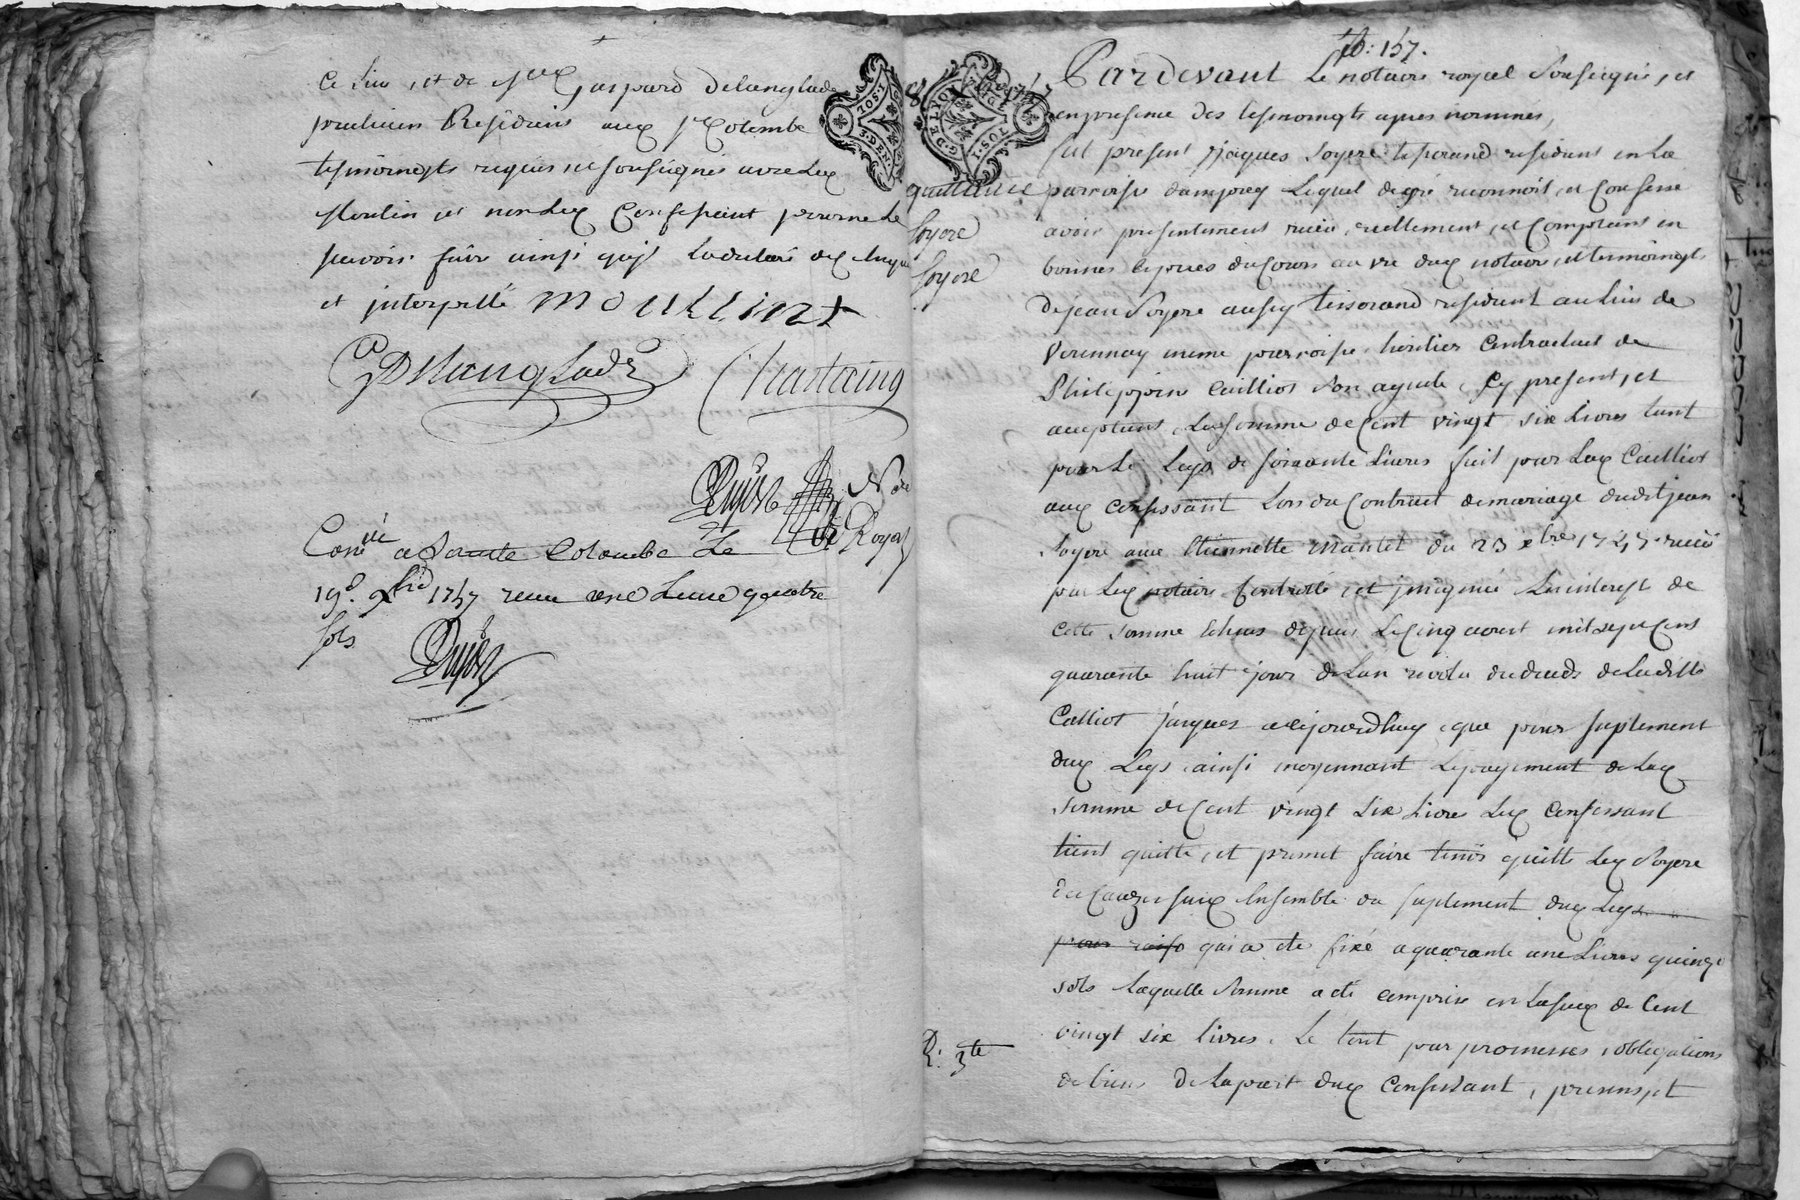 ce lieu, et de Sieur Gaspard Delanglade
praticien Residans aud Ste Colombe
tesmoingts requis et soussignés avec led
Moulin et non led Confessant pour ne le
scavoir faire ainsi quil la declaré de ce enquis
et interpellé MOULLINT
GDelanglade Chastaing
Dujost Nre
Royal
Conllé a Sainte Colombe le
19e 9bre 1757 receu une Livre quatre
sols
Dujost
1. SOL. 3. DEN.
G. DE LYON
1. SOL. 3. DEN.
fo: 157.
8 9bre 1757
quittance
Soyere
Soyere
Pardevant Le notaire royal Soussigné, et
en presence des tesmoingts apres nommés,
fut present Jaques Soyere tisserand residant en La
paroisse dampierre Lequel de gré reconnoit, et Confesse
avoir presentement receu, reellement, et Comptant en
bonnes especes du Cours au vu dud notaire, et tesmoingts
de jean Soyere aussy tisserand residant au lieu de
Verennay meme paroisse, heritier Contractuel de
Philippine Calliot son ayeule, Cy present, et
acceptant, La somme de Cent vingt six Livres tant
pour Le Legs de soixante Livres fait par Lad Calliot
aud Confessant Lors du Contrat de mariage dudit jean
Soyere avec Etiennette Mantet du 23 xbre 1747 receu
par Led notaire Controllé, et jnsinué Les interest de
cette somme Echus depuis Le Cinq aoust mil sept Cens
quarante huit jour de Lan revolu du decès de Laditte
Calliot jusques a aujourdhuy, que pour suplement
dud Legs, ainsi moyennant Le payement de Lad
somme de Cent vingt six Livres Led Confessant
tient quitte, et promet faire tenir quitte Led Soyere
de Cauze susd Ensemble du suplement dud Legs
pour raiso qui a ete fixé a quarante une Livres quinze
sols Laquelle somme a eté comprise en Lasusd de Cent
vingt six livres. Le tout par promesses, obligations
R. 3te
de biens de La part dud Confessant, presens, et